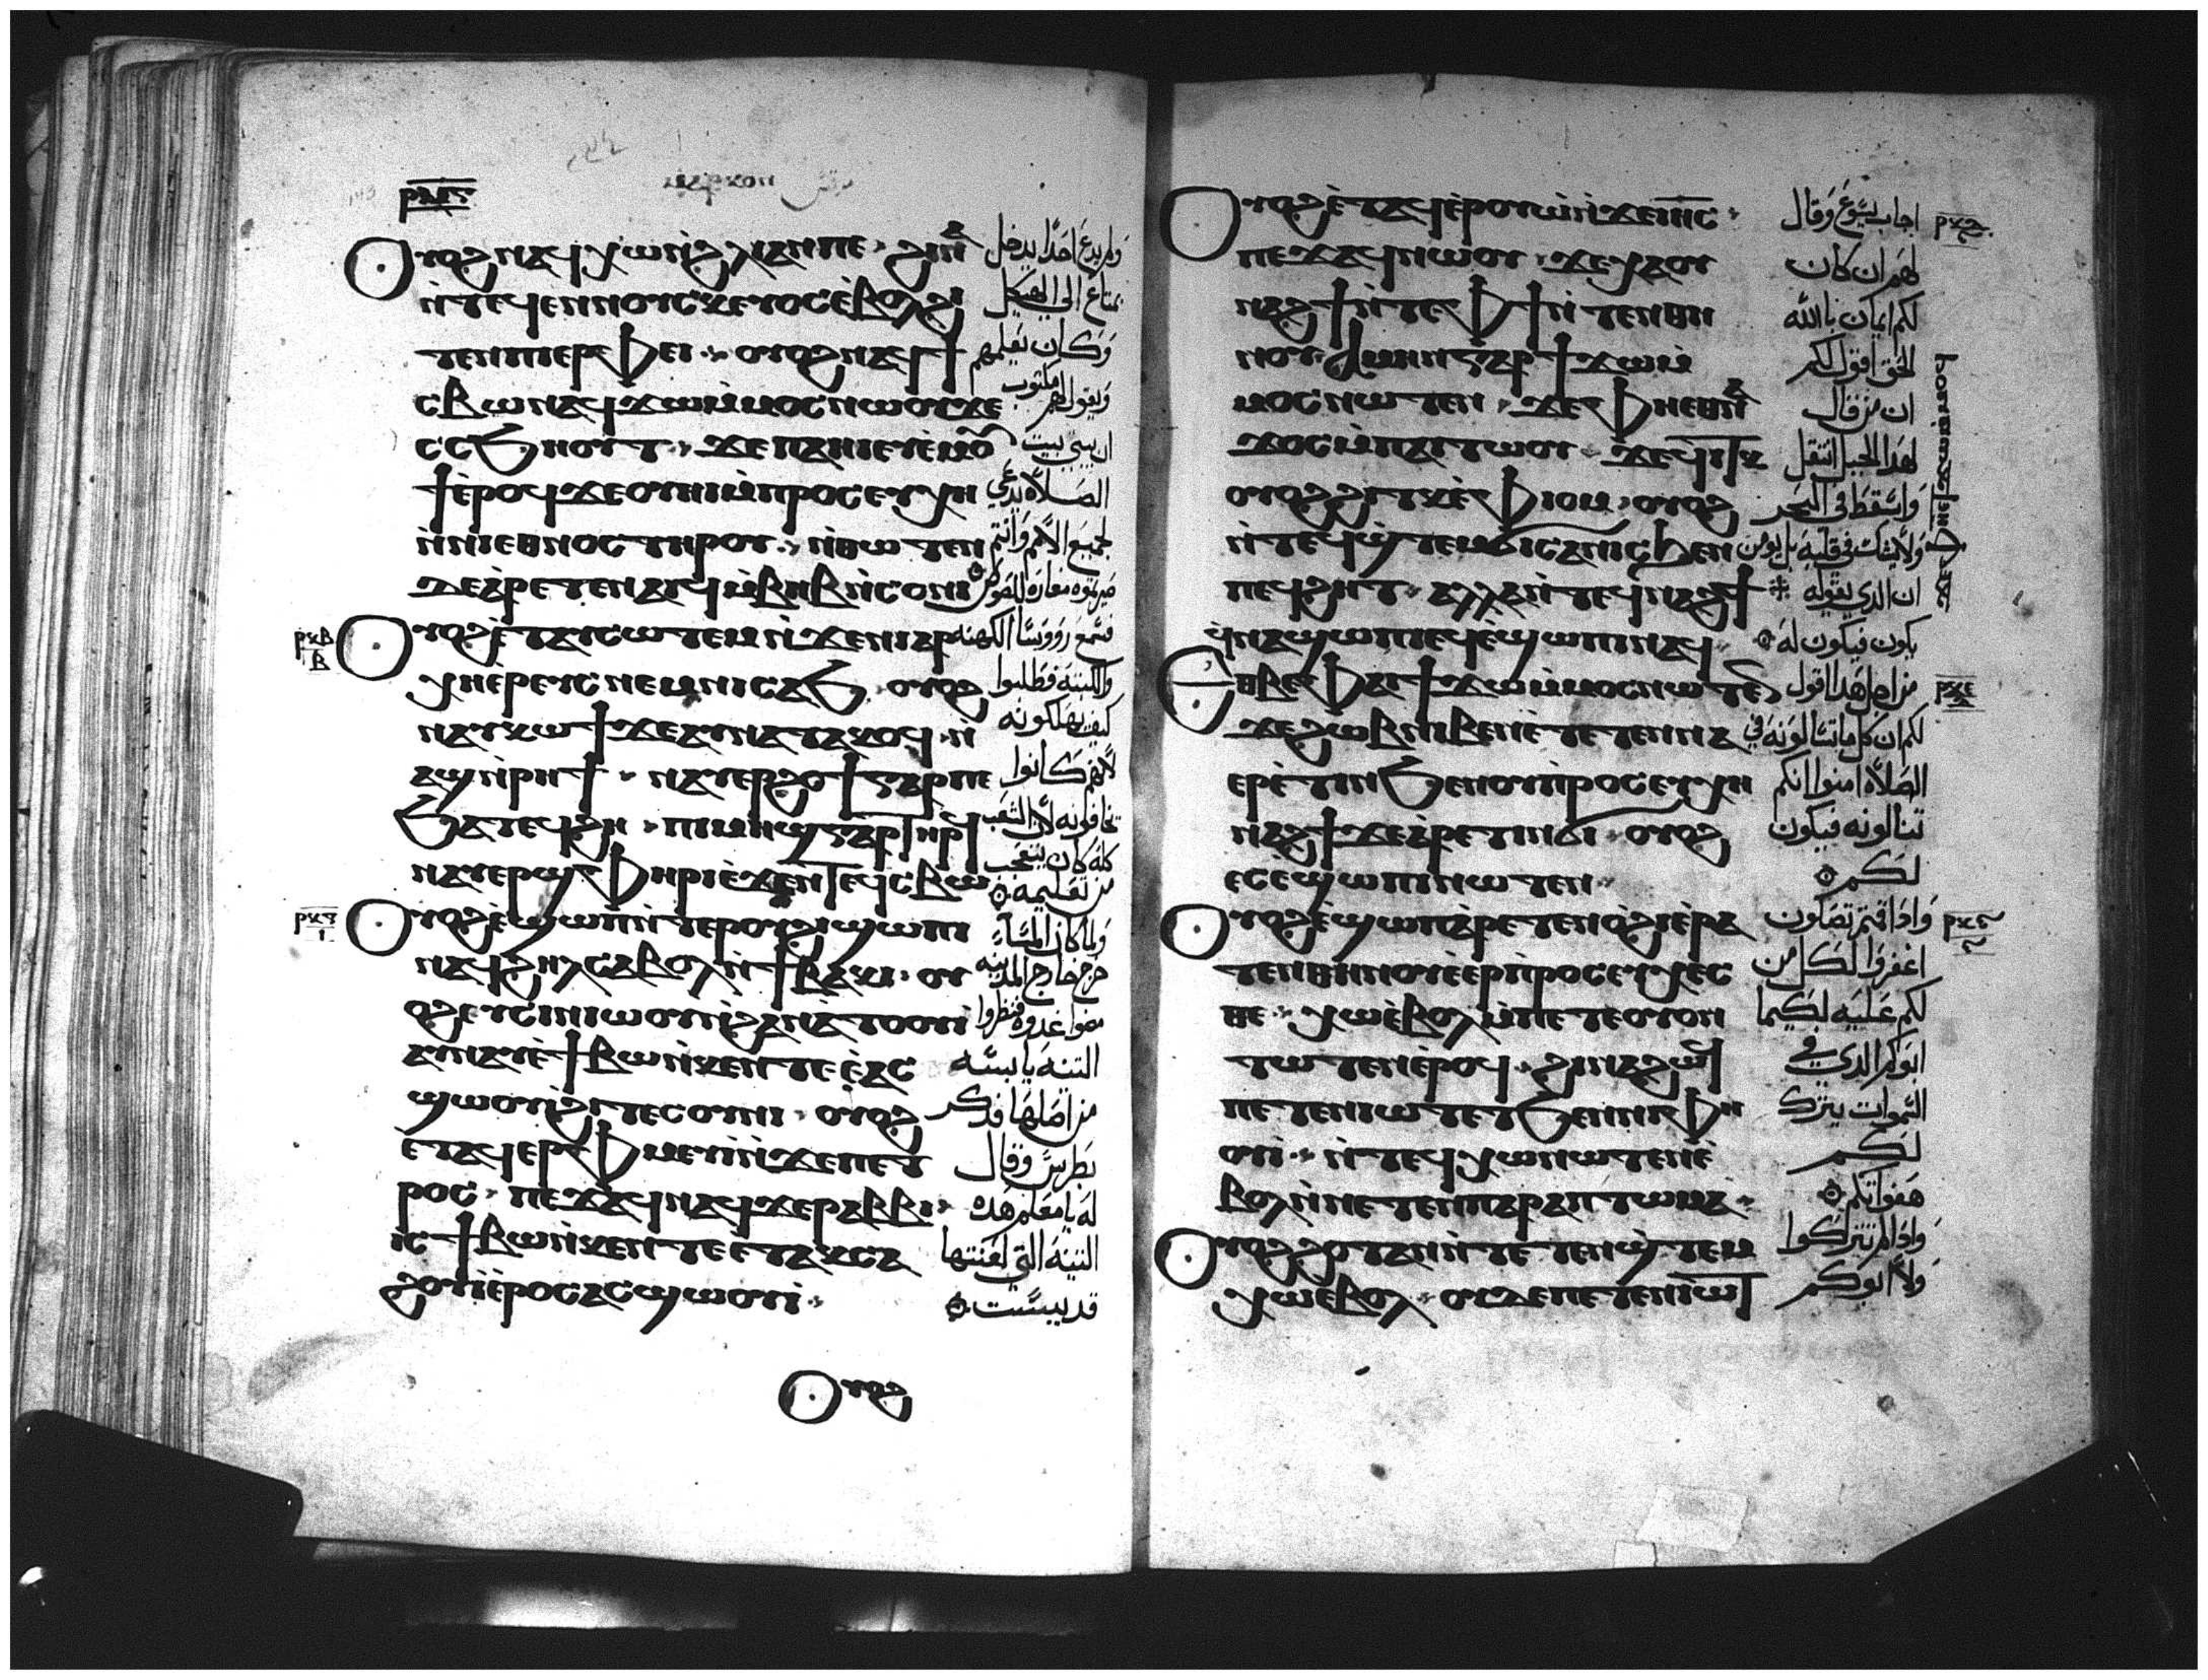 ⲟⲩⲟϩ ⲛⲁϥⲭⲱ ⲛ̀ϩⲗⲓ ⲁⲛ ⲡⲉ ϩⲓⲛⲁ
ⲛ̀ⲧⲉϥⲉⲛ ⲛⲟⲩⲥⲕⲉⲩⲟⲥ ⲉ̀ⲃⲟⲗ ϩⲓ
ⲧⲉⲛ ⲡⲓⲉⲣⲫⲉⲓ ⲟⲩⲟϩ ⲛⲁϥϯ
ⲥⲃⲱ ⲛⲁϥϫⲱ ⲙ̀ⲙⲟⲥ ⲛⲱⲟⲩ ϫⲉ
ⲥⲥϧⲏⲟⲩⲧ ϫⲉ ⲡⲁⲏⲓ ⲉⲩⲉ̀ⲙⲟⲩ
ϯ ⲉ̀ⲣⲟϥ ϫⲉ ⲟⲩⲏⲓ ⲙ̀ⲡⲣⲟⲥⲉⲩⲭⲏ
ⲛ̀ⲛⲓⲉⲑⲛⲟⲥ ⲧⲏⲣⲟⲩ ⲛ̀ⲑⲱⲧⲉⲛ
ⲇⲉ ⲁ̀ⲣⲉⲧⲉⲛⲁⲓϥ ⲙ̀ⲃⲏⲃ ⲛ̀ⲥⲟⲛⲓ
ⲟⲩⲟϩ ⲉ̀ⲧⲁⲩⲥⲱⲧⲉⲙ ⲛ̀ϫⲉ ⲛⲓⲁⲣ
ⲭⲏⲉ̀ⲣⲉⲩⲥ ⲛⲉⲙ ⲛⲓⲥⲁϧ ⲟⲩⲟϩ
ⲛⲁⲩⲕⲱϯ ϫⲉ ⲁⲩⲛⲁⲧⲁⲕⲟϥ ⲛ̀
ⲁϣ ⲛ̀ⲣⲏϯ ⲛⲁⲩⲉⲣϩⲟϯ ⲅⲁⲣ ⲡⲉ
ϧⲁⲧⲉϥϩⲏ ⲡⲓⲙⲏϣ ⲅⲁⲣ ⲧⲏⲣϥ
ⲛⲁⲩⲉⲣϣⲫⲏⲣⲓ ⲉ̀ϫⲉⲛ ⲧⲉϥⲥⲃⲱ
ⲟⲩⲟϩ ⲉ̀ϣⲱⲡ ⲛ̀ⲧⲉ ⲣⲟⲩϩⲓ ϣⲱⲡⲓ
ⲛⲁϥϩⲏⲗ ⲥⲁⲃⲟⲗ ⲛ̀ϯⲃⲁⲕⲓ ⲟⲩ
ⲟϩ ⲉⲩⲥⲓⲛⲓⲱⲟⲩ ⲛ̀ϩⲁⲛⲁ̀ⲧⲟⲟⲩⲓ
ⲁⲩⲛⲁⲩ ⲉ̀ϯⲃⲱ ⲛ̀ⲕⲉⲛⲧⲉ ⲉ̀ⲁⲥ
ϣⲱⲟⲩⲓ ϩⲓ ⲧⲉⲥⲛⲟⲩⲛⲓ ⲟⲩⲟϩ
ⲉⲧⲁϥⲉⲣⲫⲙⲉⲩⲓ ⲛ̀ϫⲉ ⲡⲉⲧ
ⲣⲟⲥ ⲡⲉϫⲁϥ ⲛⲁϥ ϫⲉ ⲣⲁⲃⲃⲓ
ⲓⲥ ϯⲃⲱ ⲛ̀ⲕⲉⲛⲧⲉ ⲉⲧⲁⲕⲥⲁ
ϩⲟⲩⲓ̀ ⲉ̀ⲣⲟⲥ ⲁⲥϣⲱⲟⲩⲓ
ⲟⲩⲟϩ
ولم يدع احدًا يدخل
بمتاع الي الهيكل
وكان يعلمهم
ويقول لهم مكتوب
ان بيتي بيت
الصلاة يدعي
لجميع الامم وانتم
صيرتموه مغارة للصوص
فسمع رووسا الكهنة
والكتبة فطلبوا
كيف يهلكونه
لانهم كانوا
يخافونه لان الشعب
كله كان يتعجب
من تعليمه
ولما كان المسا
خرج خارج المدينة
مضوا غدوة فنظروا
التينة يابسة
من اصلها فدكر
بطرس وقال
له يا معلم هده
التينة التي لعنتها
قد يبست
ⲟⲩⲟϩ ⲉ̀ⲧⲁϥⲉ̀ⲣⲟⲩⲱ̀ ⲛ̀ϫⲉ ⲓⲏⲥ
ⲡⲉϫⲁϥ ⲛⲱⲟⲩ ϫⲉ ⲭⲁ ⲟⲩ
ⲛⲁϩϯ ⲛ̀ⲧⲉ ⲫϯ ⲛ̀ⲧⲉⲛ ⲑⲏ
ⲛⲟⲩ ⲁⲙⲏⲛ ⲅⲁⲣ ϯϫⲱ ⲙ̀
ⲙⲟⲥ ⲛⲱⲧⲉⲛ ϫⲉ ⲫⲏ ⲉⲑⲛⲁ
ϫⲟⲥ ⲙ̀ⲡⲁⲓⲧⲱⲟⲩ ϫⲉ ϥⲓⲧⲕ
ⲟⲩⲟϩ ϩⲓⲧⲕ ⲉ̀ⲫⲓⲟⲙ ⲟⲩⲟϩ
ⲛ̀ⲧⲉϥϣ̀ⲧⲉⲙϭⲓⲥⲁⲛⲓⲥ ϧⲉⲛ
ⲡⲉϥϩⲏⲧ ⲁⲗⲗⲁ ⲛ̀ⲧⲉϥⲛⲁϩϯ
ϥ̀ⲛⲁϣⲱⲡⲓ ⲉϥⲉ̀ϣⲱⲡⲓ ⲛⲁϥ
ⲉⲑⲃⲉ ⲫⲁⲓ ϯϫⲱ ⲙ̀ⲙⲟⲥ ⲛⲱⲧⲉⲛ
ϫⲉ ϩⲱⲃ ⲛⲓⲃⲉⲛ ⲉ̀ⲧⲉⲧⲉⲛⲛⲁ
ⲉⲣⲉ̀ⲧⲓⲛ ϧⲉⲛ ⲟⲩⲡⲣⲟⲥⲉⲩⲭⲏ
ⲛⲁϩϯ ϫⲉ ⲁ̀ⲣⲉⲧⲓⲛϭⲓ ⲟⲩⲟϩ
ⲉⲥⲉ̀ϣⲱⲡⲓ ⲛⲱⲧⲉⲛ
ⲟⲩⲟϩ ⲉ̀ϣⲱⲡ ⲁ̀ⲣⲉⲧⲉⲛⲟ̀ϩⲓ ⲉ̀ⲣⲁ
ⲧⲉⲛ ⲑⲏⲛⲟⲩ ⲉ̀ⲉⲣⲡ̀ⲣⲟⲥⲉⲩⲭⲉⲥ
ⲑⲉ ⲭⲱ ⲉ̀ⲃⲟⲗ ⲙ̀ⲡⲉⲧⲉ ⲟⲩⲟⲛ
ⲧⲱⲧⲉⲛ ⲉ̀ⲣⲟϥ ϩⲓⲛⲁ ϩⲱϥ
ⲡⲉⲧⲉⲛⲓⲱⲧ ⲉⲧϧⲉⲛ ⲛⲓⲫⲏ
ⲟⲩⲓ̀ ⲛ̀ⲧⲉϥⲭⲱ ⲛⲱⲧⲉⲛ ⲉ̀
ⲃⲟⲗ ⲛ̀ⲛⲉⲧⲉⲛⲡⲁⲣⲁⲡⲧⲱⲙⲁ
ⲟⲩⲟϩ ϩⲟⲧⲁⲛ ⲛ̀ⲧⲉⲧⲉⲛϣ̀ⲧⲉⲙ
ⲭⲱ ⲉⲃⲟⲗ ⲟⲩⲇⲉ ⲡⲉⲧⲉⲛⲓⲱⲧ
اجاب يسوع وقال
لهم ان كان
لكم ايمان بالله
الحق اقول لكم
ان من قال
لهدا الجبل انتقل
واسقط في البحر
ولا يشك في قلبه بل يومن
ان الدي يقوله
يكون فيكون له
من اجل هدا اقول
لكم ان كل ما تسالونه في
الصلاة امنوا انكم
تنالونه فيكون
لكم
وادا قمتم تصلون
اغفروا لكل من
لكم عليه لكيما
ابوكم الدي في
السموات يترك
لكم
هفواتكم
وادا لم تتركوا
ولا ابوكم